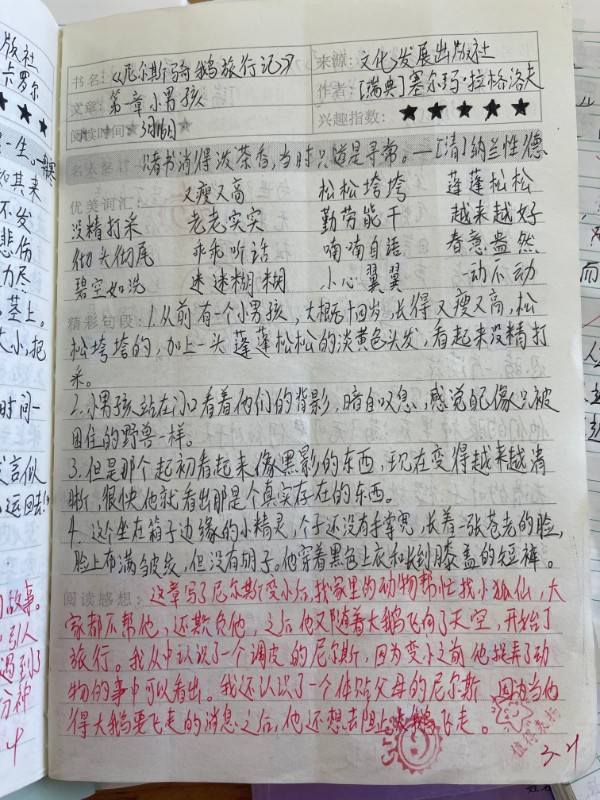 版社
卡罗尔
书名：《尼尔斯骑鹅旅行记》
来源：文化发展出版社
文章：第一章小男孩
作者：[瑞典]塞尔玛·拉格洛夫
阅读时间：3月16日
兴趣指数：★★★★★
名人名言：赌书消得泼茶香，当时只道是寻常。—[清]纳兰性德
优美词汇： 又瘦又高 松松垮垮 蓬蓬松松
没精打采 老老实实 勤劳能干 越来越好
彻头彻尾 乖乖听话 喃喃自语 春意盎然
碧空如洗 迷迷糊糊 小心翼翼 一动不动
精彩句段：1.从前有一个小男孩，大概十四岁，长得又瘦又高，松
松垮垮的，加上一头蓬蓬松松的淡黄色头发，看起来没精打
采。
2.小男孩站在门口看着他们的背影，暗自叹息，感觉自己像只被
困住的野兽一样。
3.但是那个起初看起来像黑影的东西，现在变得越来越清
晰，很快他就看出那是个真实存在的东西。
4.这个坐在箱子边缘的小精灵，个子还没有手掌宽，长着一张苍老的脸，
脸上布满皱纹，但没有胡子。他穿着黑色上衣和长到膝盖的短裤。
阅读感想：这章写了尼尔斯变小后，找家里的动物帮忙找小狐仙，大
家都不帮他，还欺负他，之后他又随着大鹅飞向了天空，开始了
旅行。我从中认识了一个调皮的尼尔斯，因为变小之前他捉弄了动
物的事中可以看出。我还认识了一个体贴父母的尼尔斯，因为当他
得大鹅要飞走的消息之后，他还想去阻止鹅飞走。